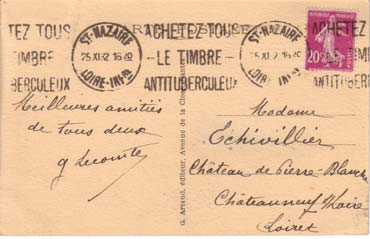 TEZ TOUS
TIMBRE
UBERCULEUX
ST-NAZAIRE
25 XI 32 16
LOIRE-INF
ACHETEZ TOUS
LE TIMBRE
ANTITUBERCULEUX
ST-NAZAIRE
LOIRE-INF
ACHETEZ
ANTITUBE
20c
Meilleures amitiés
de tous deux
G Lecomte
G. Artaud, éditeur, Avenue de la
Madame
Echivillier
Château de Pierre-Blanche
Châteauneuf s/Loire
Loiret